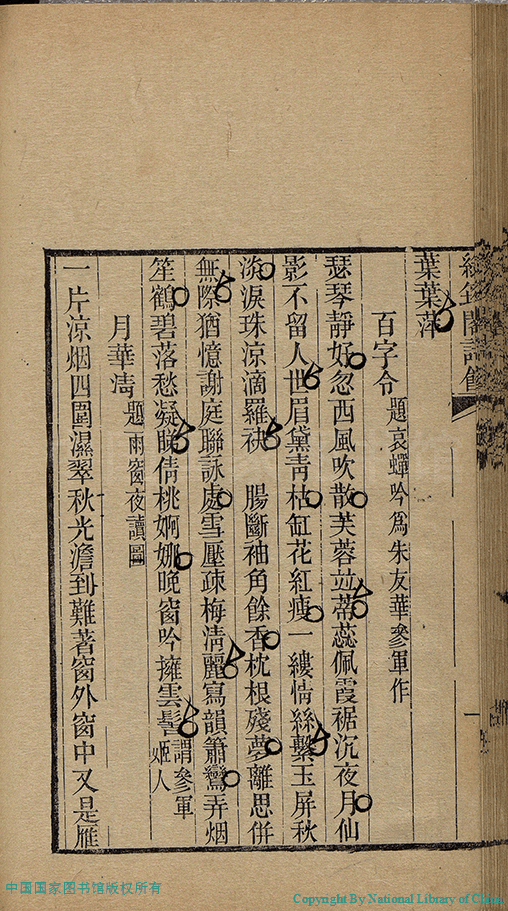 葉葉萍
百字令題哀蟬吟為朱友華參軍作
瑟琴靜好忽西風吹散芙蓉竝蒂蕊佩霞裾沉夜月仙
影不留人世眉黛青枯缸花紅瘦一縷情絲繫玉屏秋
淡淚珠涼滴羅袂　腸斷袖角餘香枕根殘夢離思併
無際猶憶謝庭聯詠處雪壓疎梅淸麗寫韻簫鸞弄烟
笙鶴碧落愁凝睇倩桃婀娜晚窗吟擁雲髻謂參軍姬人
月華淸題雨窗夜讀圖
一片涼烟四圍濕翠秋光澹到難著窗外窗中又是雁
中国国家图书馆版权所有
Copyright By National Library of China